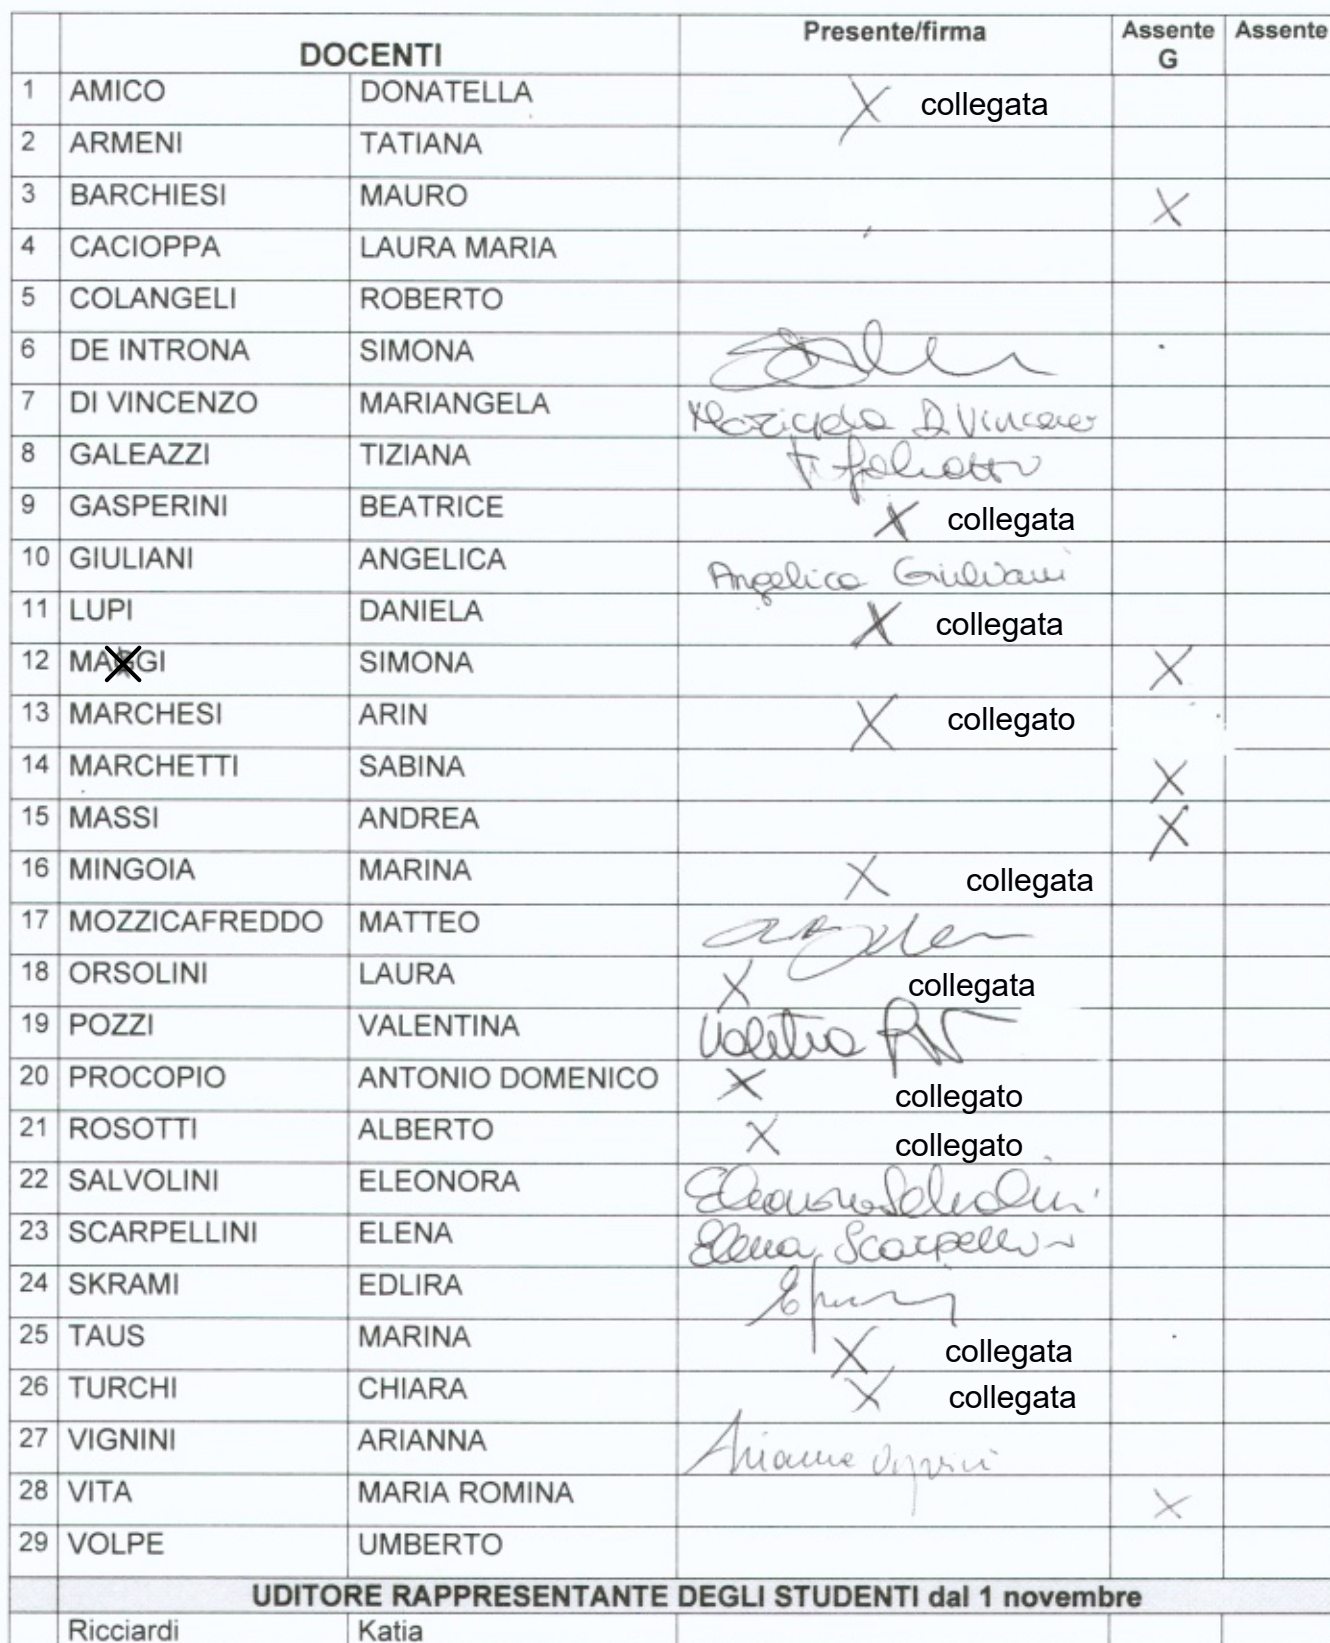 DOCENTI Presente/firma Assente G Assente
1 AMICO DONATELLA X collegata
2 ARMENI TATIANA
3 BARCHIESI MAURO X
4 CACIOPPA LAURA MARIA
5 COLANGELI ROBERTO
6 DE INTRONA SIMONA
7 DI VINCENZO MARIANGELA
8 GALEAZZI TIZIANA
9 GASPERINI BEATRICE X collegata
10 GIULIANI ANGELICA Angelica Giuliani
11 LUPI DANIELA X collegata
12 MAGGI SIMONA X
13 MARCHESI ARIN X collegato
14 MARCHETTI SABINA X
15 MASSI ANDREA X
16 MINGOIA MARINA X collegata
17 MOZZICAFREDDO MATTEO
18 ORSOLINI LAURA X collegata
19 POZZI VALENTINA
20 PROCOPIO ANTONIO DOMENICO X collegato
21 ROSOTTI ALBERTO X collegato
22 SALVOLINI ELEONORA Eleonora Salvolini
23 SCARPELLINI ELENA Elena Scarpellini
24 SKRAMI EDLIRA
25 TAUS MARINA X collegata
26 TURCHI CHIARA X collegata
27 VIGNINI ARIANNA Arianna Vignini
28 VITA MARIA ROMINA X
29 VOLPE UMBERTO
UDITORE RAPPRESENTANTE DEGLI STUDENTI dal 1 novembre
Ricciardi Katia